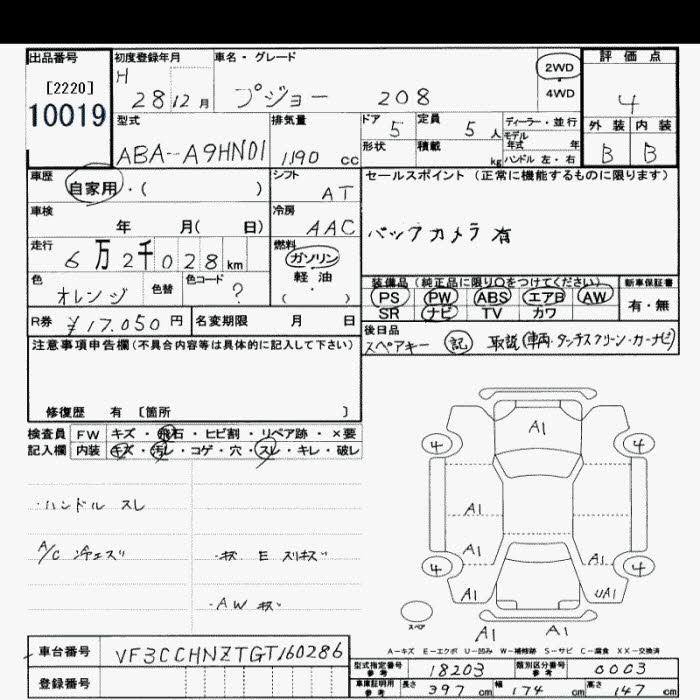 出品番号 初度登録年月 車名・グレード 2WD 評価点
[2220] H 28 12月 プジョー 208 4WD 4
10019 型式 排気量 ドア 5 定員 5人 ディーラー・並行 外装 内装
ABA-A9HN01 1190 cc 形状 積載 kg モデル年式 年 ハンドル 左・右 B B
車歴 自家用・( ) シフト AT セールスポイント (正常に機能するものに限ります)
車検 年 月( 日) 冷房 AAC バックカメラ有
走行 6万2千028km 燃料 ガソリン
軽油
( ・ )
色 オレンジ 色替 色コード ? 装備品 (純正品に限り○をつけてください) 新車保証書
PS PW ABS エアB AW 有・無
SR ナビ TV カワ
R券 ¥17.050円 名変期限 月 日 後日品
スペアキー 記 取説(車両・タッチスクリーン・カーナビ)
注意事項申告欄(不具合内容等は具体的に記入して下さい)
修復歴 有 [箇所 ]
検査員 FW キズ・飛石・ヒビ割・リペア跡・×要
記入欄 内装 キズ・汚レ・コゲ・穴・スレ・キレ・破レ
・ハンドル スレ
A/C 冷エズ ・キズ E スリキズ
・AW キズ
A1
4 4
A1
A1 A1
4 4
A1 UA1
スペア A1 A1
A-キズ E-エクボ U-凹み W-補修跡 S-サビ C-腐食 XX-交換済
車台番号 VF3CCHNZTGT160286
登録番号
型式指定番号 参考 18203 類別区分番号 参考 0003
車庫証明用 参考 長さ 397 cm 幅 174 cm 高さ 147 cm